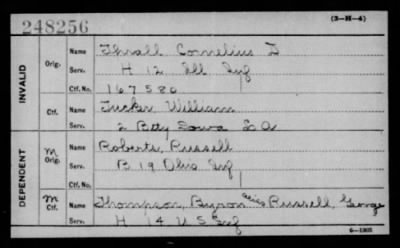 248256
(3-H-4)
INVALID
Orig.
Name Thrall Cornelius D
Serv. H 12 Ill Inf
Ctf. No. 167580
Ctf.
Name Tucker William
Serv. 2 Btty Iowa L A
DEPENDENT
M Orig.
Name Roberts, Russell
Serv. B 19 Ohio Inf
Ctf. No.
M Ctf.
Name Thompson, Byron alias Russell, George
Serv. H 14 U S Inf
6-1305